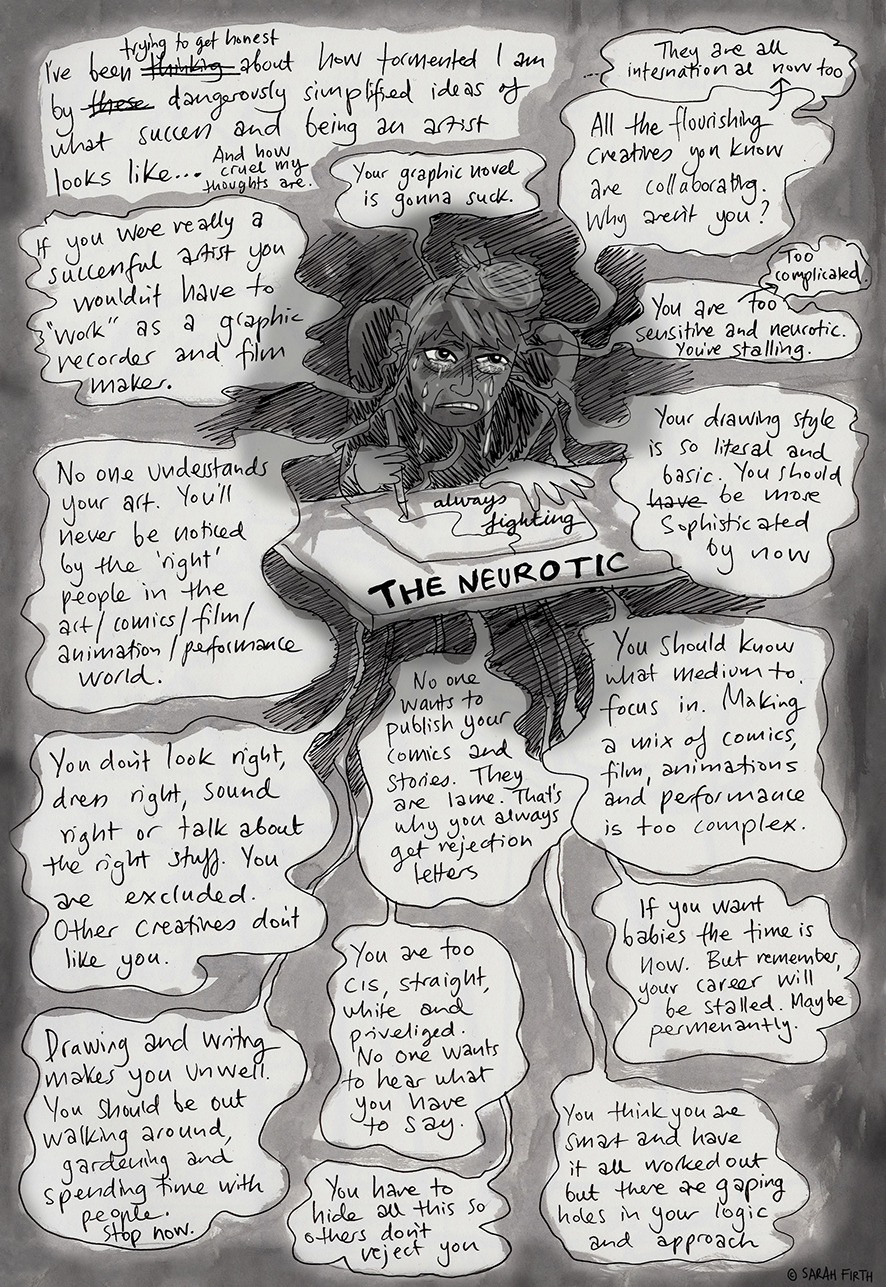 trying to get honest
I've been thinking about how tormented I am
by these dangerously simplified ideas of
what success and being an artist
looks like...
And how
cruel my
thoughts are.
Your graphic novel
is gonna suck.
They are all
international now too
All the flourishing
creatives you know
are collaborating.
Why aren't you?
If you were really a
successful artist you
wouldn't have to
"work" as a graphic
recorder and film
maker.
Too
complicated.
You are too
sensitive and neurotic.
You're stalling.
Your drawing style
is so literal and
basic. You should
have be more
sophisticated
by now
always
fighting
THE NEUROTIC
No one understands
your art. You'll
never be noticed
by the 'right'
people in the
art/comics/film/
animation/performance
world.
No one
wants to
publish your
comics and
stories. They
are lame. That's
why you always
get rejection
letters
You should know
what medium to
focus in. Making
a mix of comics,
film, animations
and performance
is too complex.
You don't look right,
dress right, sound
right or talk about
the right stuff. You
are excluded.
Other creatives don't
like you.
You are too
cis, straight,
white and
priveliged.
No one wants
to hear what
you have
to say.
If you want
babies the time is
now. But remember,
your career will
be stalled. Maybe
permenantly.
Drawing and writing
makes you unwell.
You should be out
walking around,
gardening and
spending time with
people.
Stop now.
You have to
hide all this so
others don't
reject you
You think you are
smart and have
it all worked out
but there are gaping
holes in your logic
and approach
© SARAH FIRTH